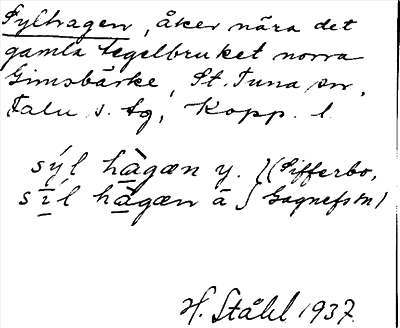 Sylhagen, åker nära det
gamla tegelbruket norra
Gimsbärke, St. Tuna sn.
Falu s. tg, Kopp. l.
sýl hàgæn y. } (Sifferbo,
síl hàgæn ä } Gagnefs sn)
H. Ståhl 1937.